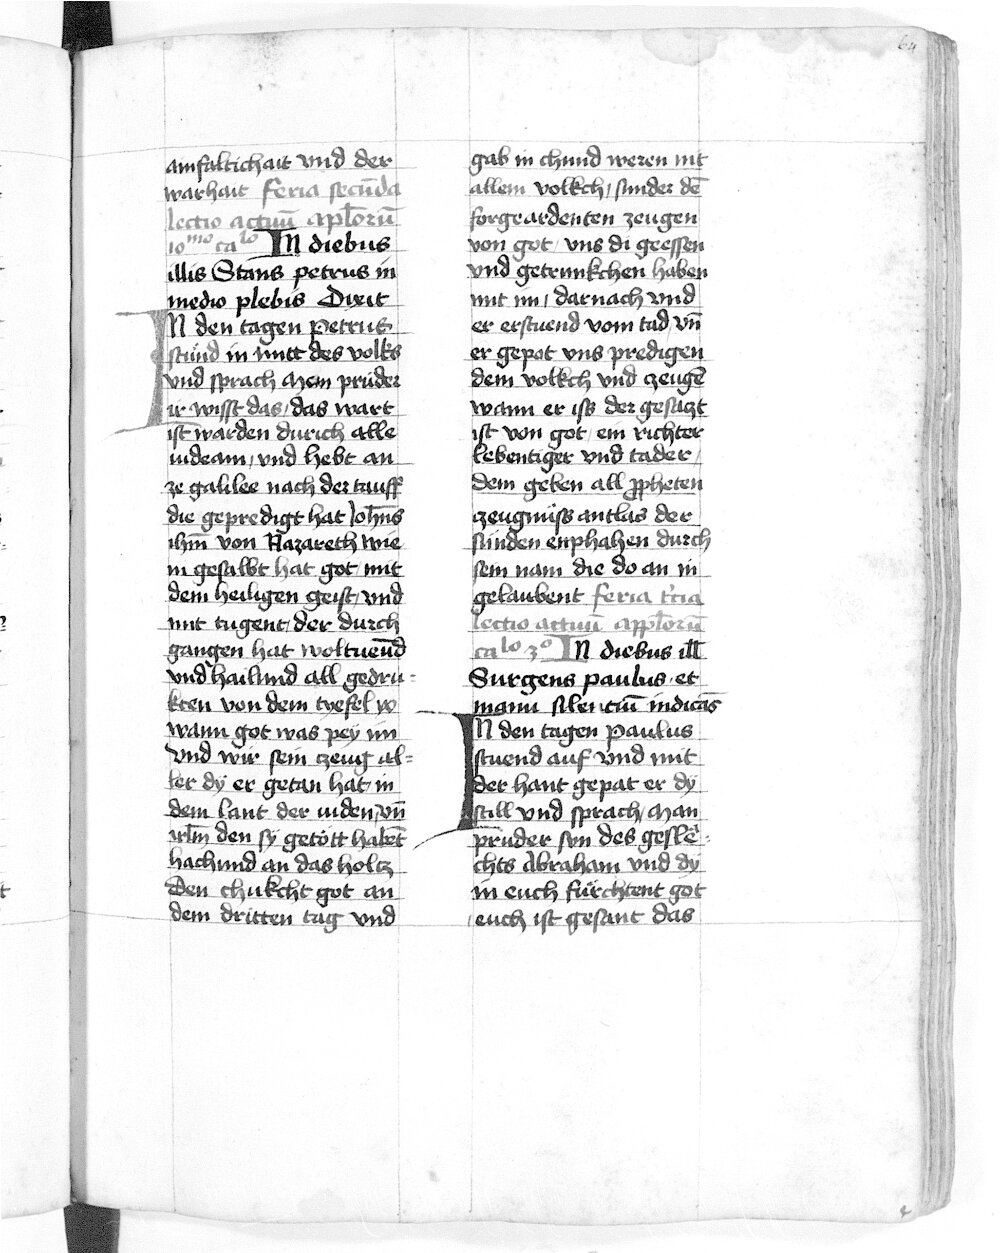 64
ainfaltichait vnd der
warhait feria secūda
lectio actuū aplorū
10mo calo In diebus
illis Stans petrus in
medio plebis Dixit
IN den tagen Petrus
stuend in mitt des volks
vnd sprach Mein prüder
ir wisst das / das wart
ist warden durich alle
iudeam / vnd hebt an
ze galilee nach der tauff
die gepredigt hat Joh̄ns
ihm̄ von Nazareth wie
in gesalbt hat got / mit
dem heiligen geist / vnd
mit tugent / der durch
gangen hat woltuēnd
vnd hailund all gedru-
kten von dem tyefel
wann got was pey im
vnd wir sein czeug al-
ler dy er getan hat / in
dem lant der iuden / vn̄
irlm̄ den sy getött habēt
hachund an das holtz
Den chukcht got an
dem dritten tag vnd
gab in chund weren nit
allem volkch / sunder dē
forgeardenten zeugen
von got / vns di geessen
vnd getrunkchen haben
mit im / darnach vnd
er erstuend vom tad vn̄
er gepot vns predigen
dem volkch vnd czeugē
wann er iss der gesaczt
ist von got / ein richter
lebentiger vnd tader /
dem geben all ppheten
czeugnüss antlas der
sünden enphahen durch
sein nam die do an in
gelaubent feria tcia
lectio actuū applorū
calo 3o IN diebus ill
Surgens paulus et
manu silenciū indicās
IN den tagen Paulus
stuend auf vnd mit
der hant gepat er dy
still vnd sprach / Man
prüder svn des geslē-
chts Abraham vnd dy
in euch fürchtent got
euch ist gesant das